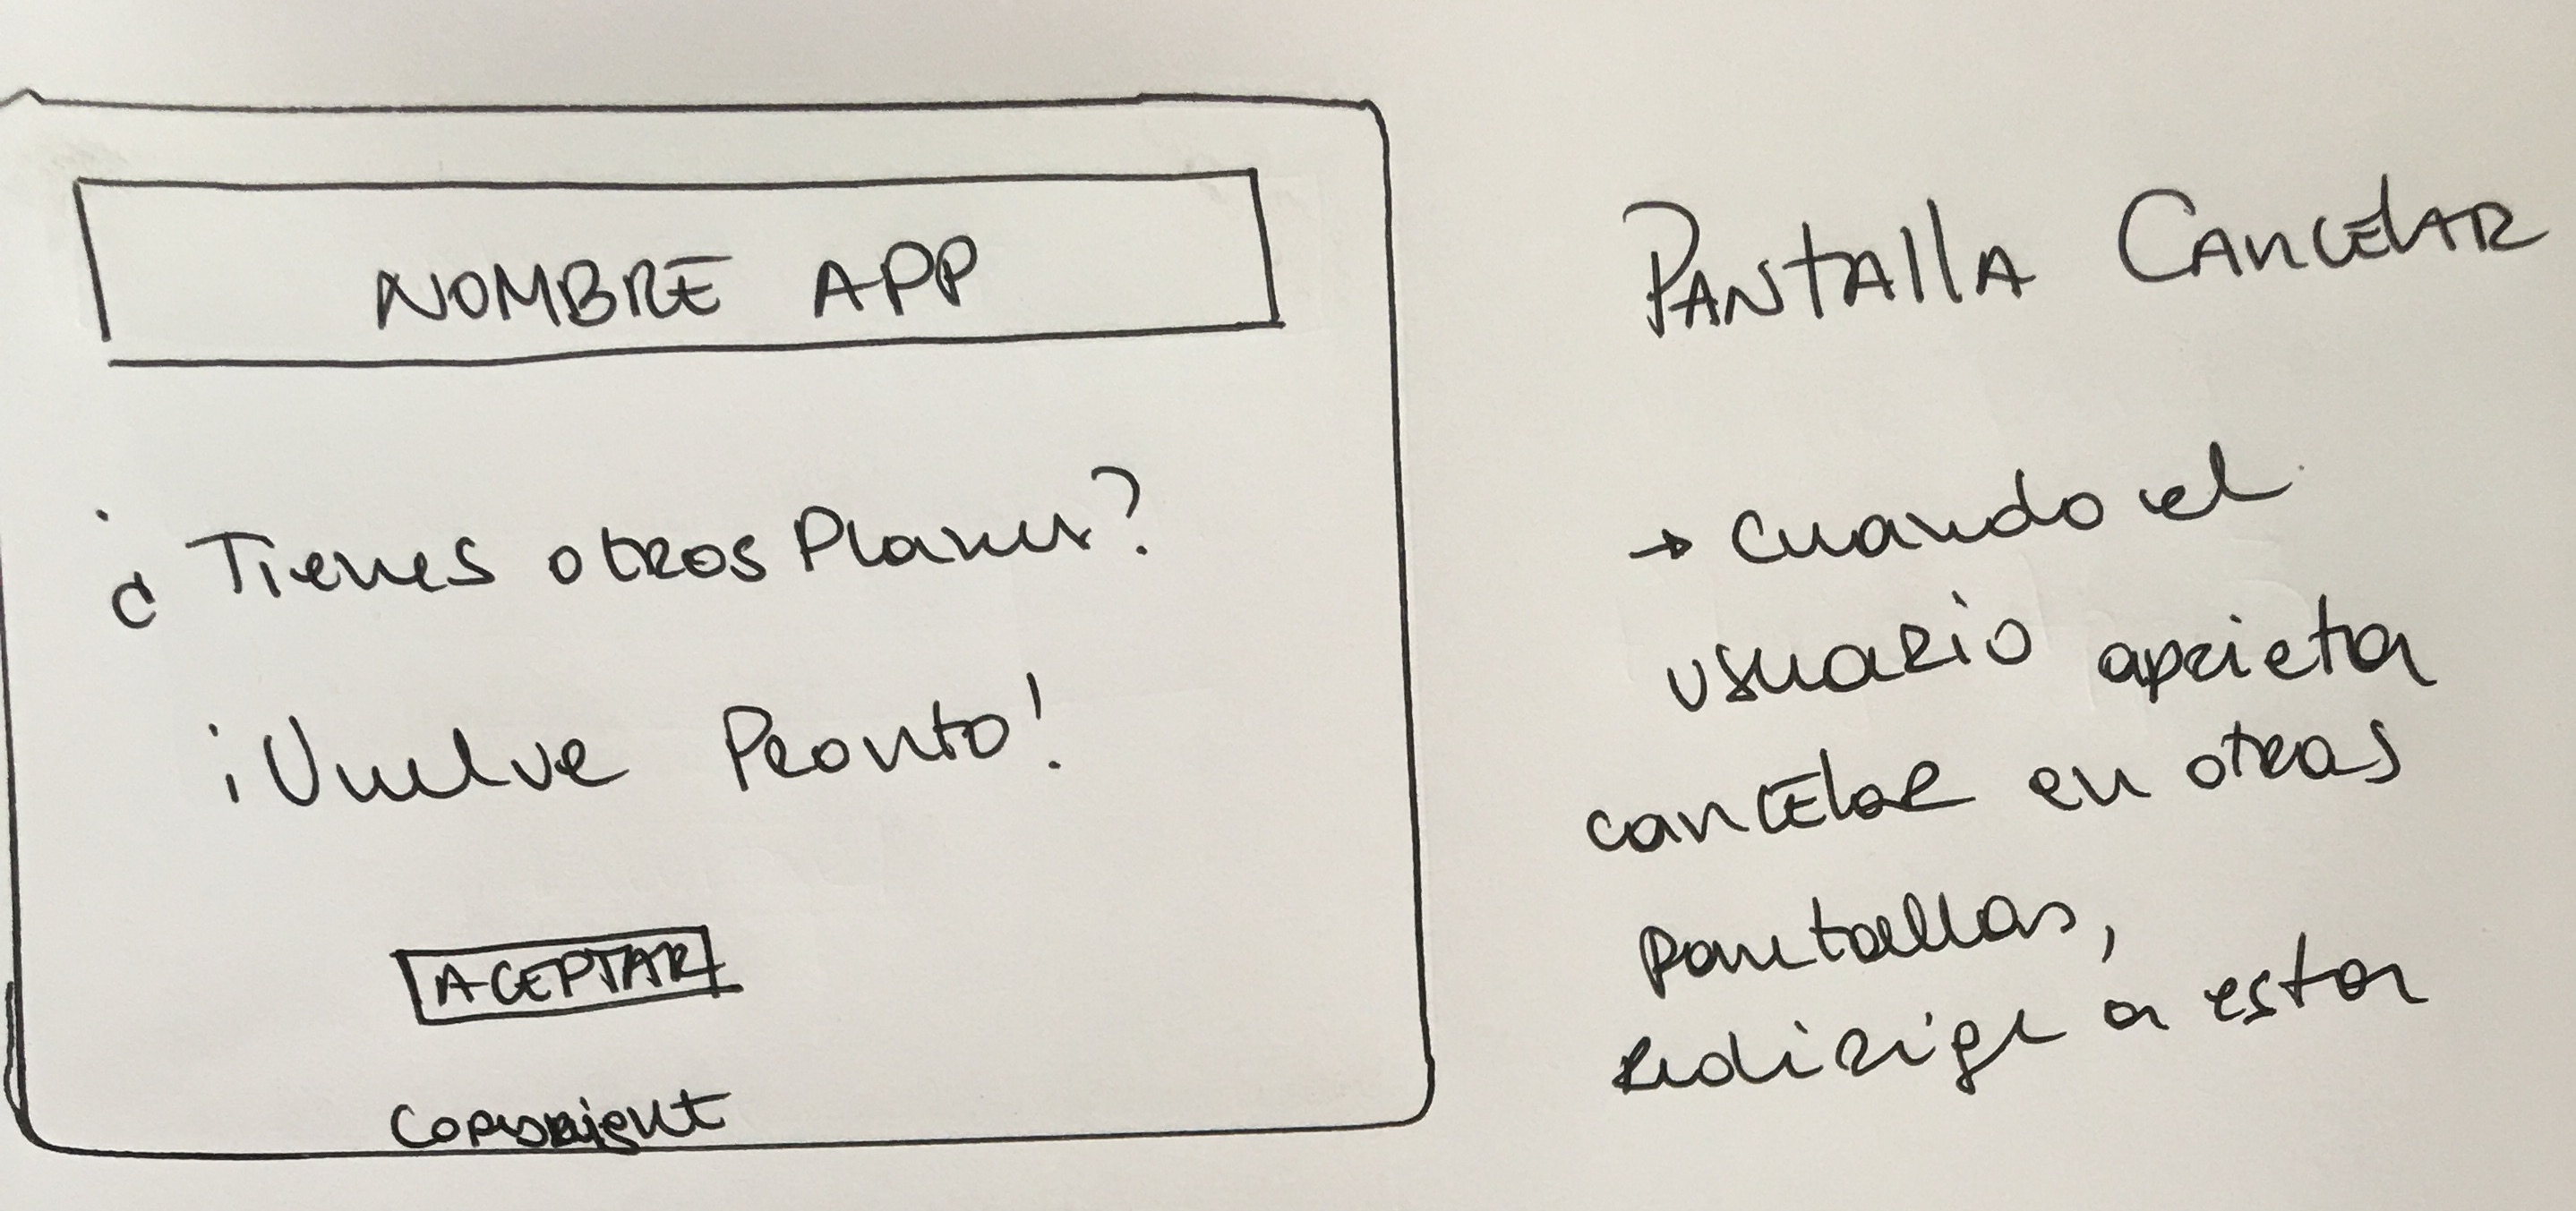 NOMBRE APP
¿Tienes otros Planes?
¡Vuelve Pronto!
ACEPTAR
Copyright
PANTALLA CANCELAR
→ Cuando el
usuario aprieta
cancelar en otras
pantallas,
redirige a esta